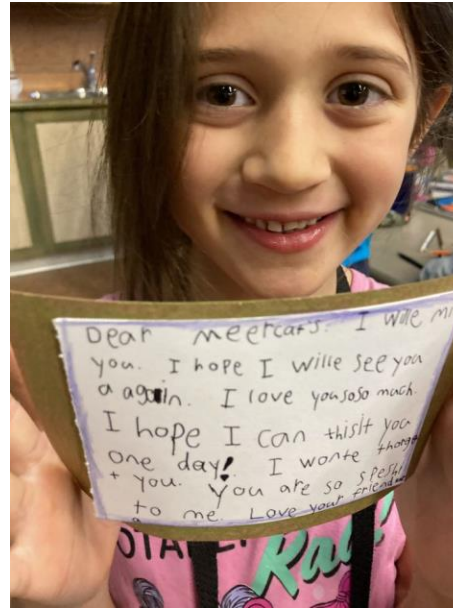 Dear meercats. I wille mi
you. I hope I wille see you
a again. I love you soso much.
I hope I can thisit you
one day! I wonte
+ you. You are so speshl
to me. Love your friend
Rad!